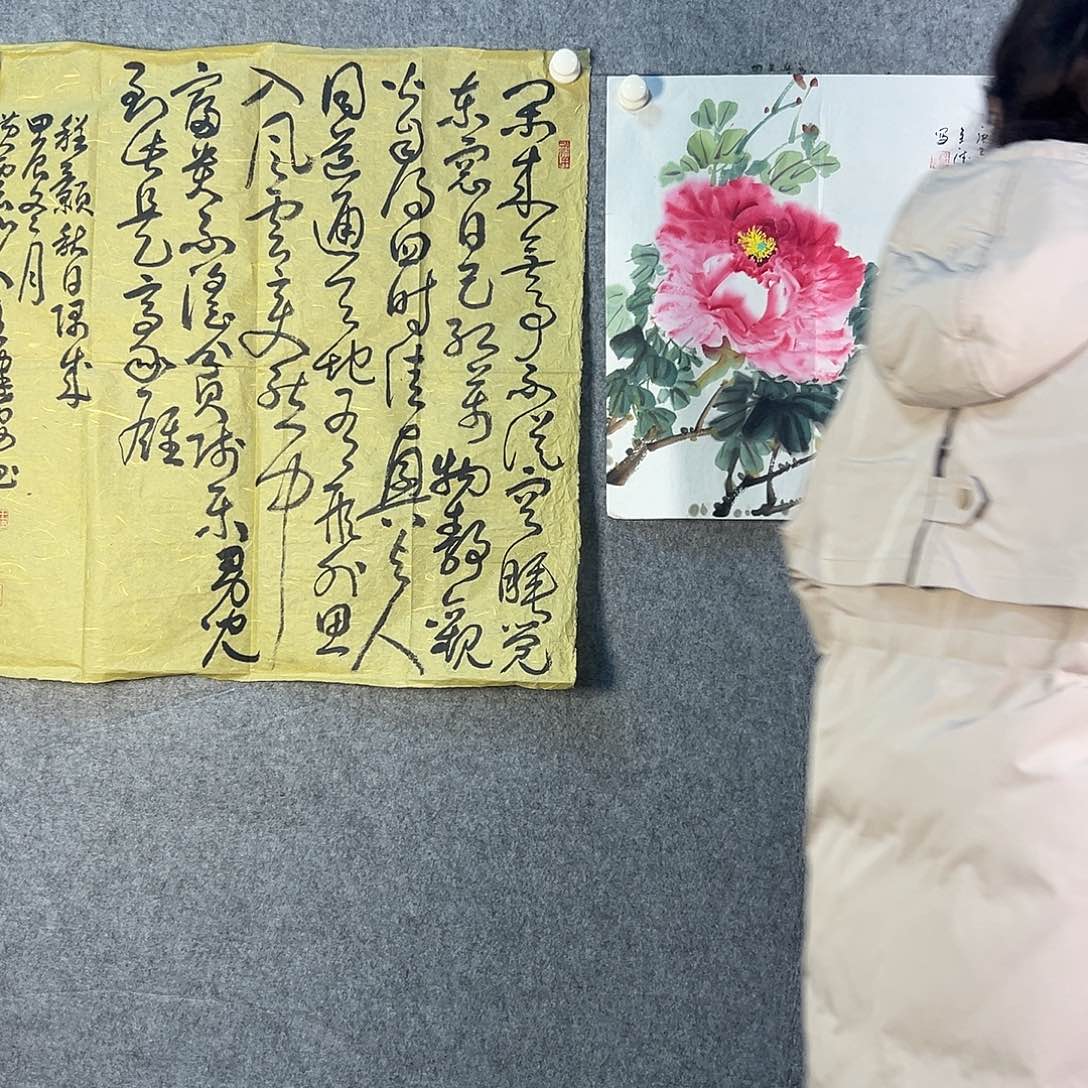 闲来无事不从容睡觉
东窗日已红万物静观
皆自得四时佳兴与人
同道通天地有形外思
入风云变态中
富贵不淫贫贱乐男儿
到此是豪雄
程颢秋日偶成
甲辰冬月
写